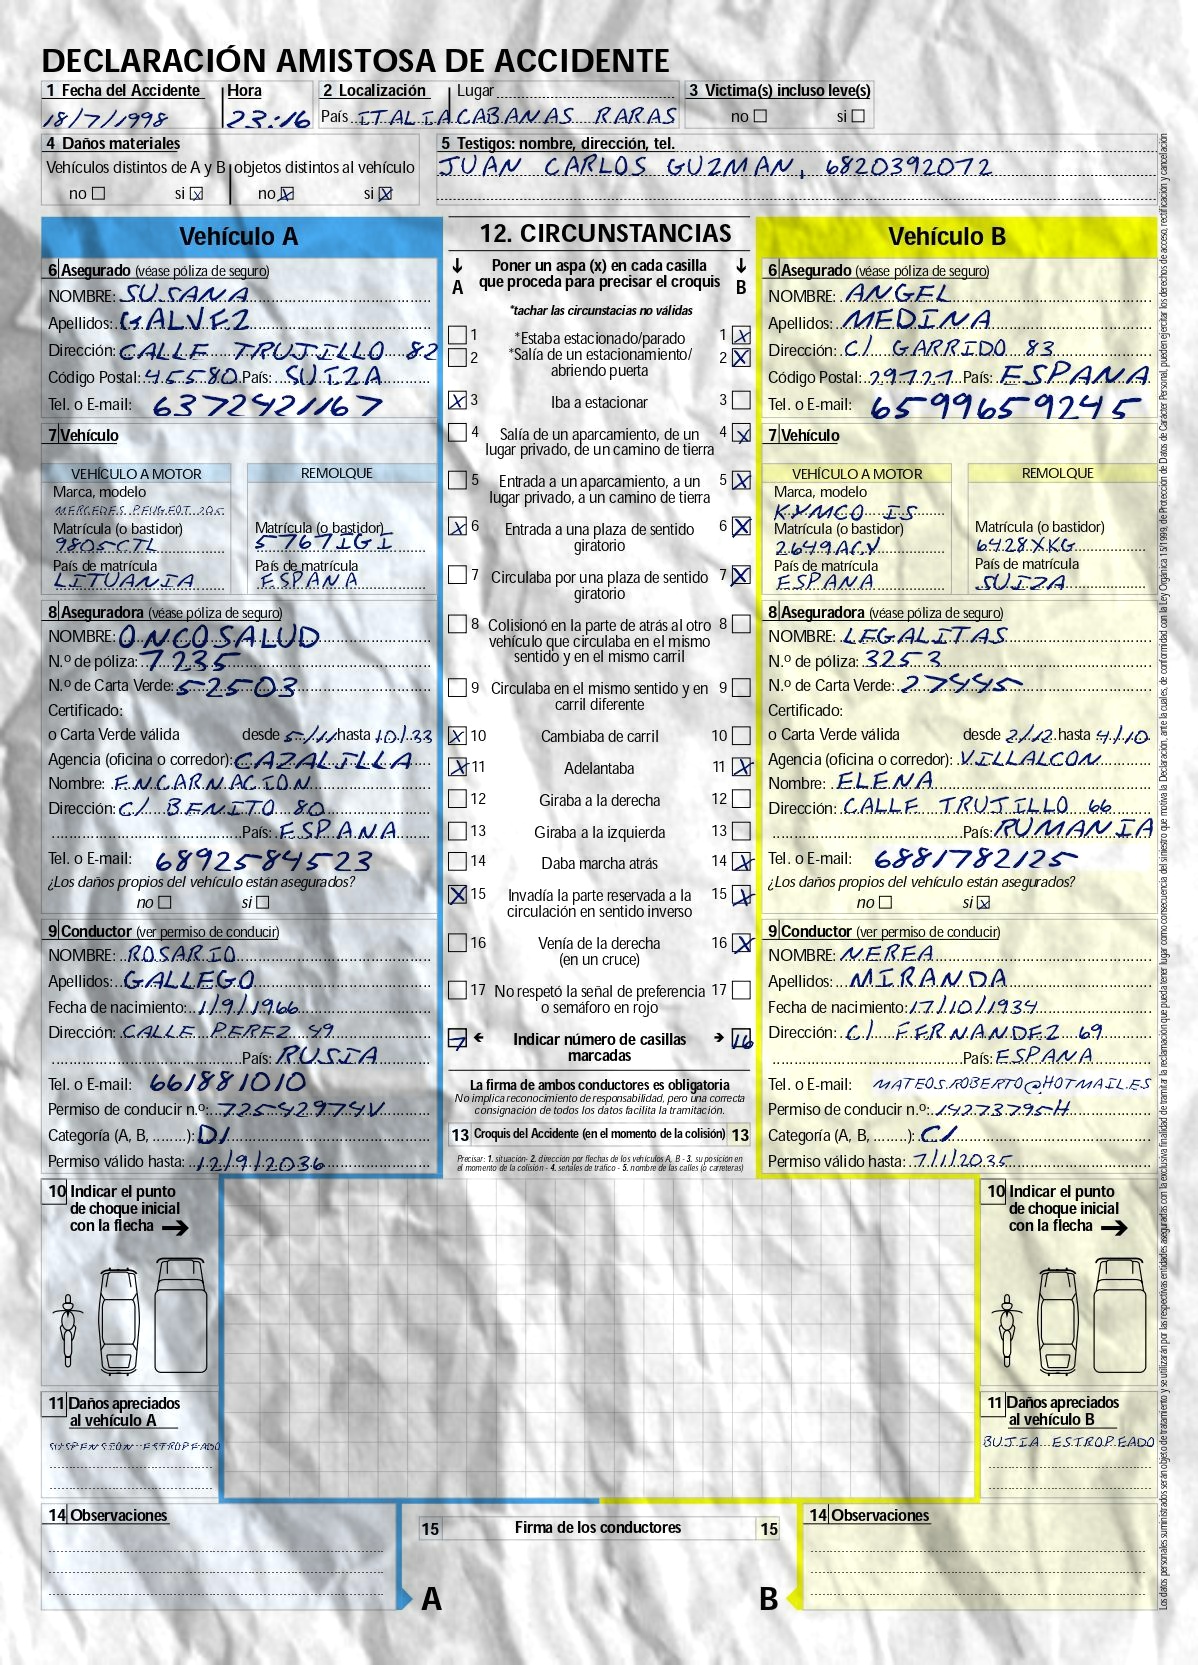 DECLARACIÓN AMISTOSA DE ACCIDENTE
1 Fecha del Accidente Hora 2 Localización Lugar 3 Victima(s) incluso leve(s)
18/7/1998 23:16 País ITALIA CABANAS RARAS no si
4 Daños materiales
Vehículos distintos de A y B objetos distintos al vehículo
no si X no X si X
5 Testigos: nombre, dirección, tel.
JUAN CARLOS GUZMAN, 6820392072
Vehículo A
6 Asegurado (véase póliza de seguro)
NOMBRE: SUSANA
Apellidos: GALVEZ
Dirección: CALLE TRUJILLO 82
Código Postal: 45580 País: SUIZA
Tel. o E-mail: 6372421167
7 Vehículo
VEHÍCULO A MOTOR REMOLQUE
Marca, modelo
MERCEDES PEUGEOT 205
Matrícula (o bastidor) Matrícula (o bastidor)
9805CTL 5767IGI
País de matrícula País de matrícula
LITUANIA ESPANA
8 Aseguradora (véase póliza de seguro)
NOMBRE: ONCOSALUD
N.º de póliza: 7235
N.º de Carta Verde: 52503
Certificado:
o Carta Verde válida desde 5/11 hasta 10/33
Agencia (oficina o corredor): CAZALILLA
Nombre: ENCARNACION
Dirección: C/ BENITO 80
País: ESPANA
Tel. o E-mail: 6892584523
¿Los daños propios del vehículo están asegurados?
no si
9 Conductor (ver permiso de conducir)
NOMBRE: ROSARIO
Apellidos: GALLEGO
Fecha de nacimiento: 1/9/1966
Dirección: CALLE PEREZ 49
País: RUSIA
Tel. o E-mail: 661881010
Permiso de conducir n.º: 72542974V
Categoría (A, B, ........): D1
Permiso válido hasta: 12/9/2036
12. CIRCUNSTANCIAS
A Poner un aspa (x) en cada casilla B
que proceda para precisar el croquis
*tachar las circunstacias no válidas
1 *Estaba estacionado/parado 1 X
2 *Salía de un estacionamiento/ 2 X
abriendo puerta
X 3 Iba a estacionar 3
4 Salía de un aparcamiento, de un 4 X
lugar privado, de un camino de tierra
5 Entrada a un aparcamiento, a un 5 X
lugar privado, a un camino de tierra
X 6 Entrada a una plaza de sentido 6 X
giratorio
7 Circulaba por una plaza de sentido 7 X
giratorio
8 Colisionó en la parte de atrás al otro 8
vehículo que circulaba en el mismo
sentido y en el mismo carril
9 Circulaba en el mismo sentido y en 9
carril diferente
X 10 Cambiaba de carril 10
X 11 Adelantaba 11 X
12 Giraba a la derecha 12
13 Giraba a la izquierda 13
14 Daba marcha atrás 14 X
X 15 Invadía la parte reservada a la 15 X
circulación en sentido inverso
16 Venía de la derecha 16 X
(en un cruce)
17 No respetó la señal de preferencia 17
o semáforo en rojo
7 Indicar número de casillas 16
marcadas
La firma de ambos conductores es obligatoria
No implica reconocimiento de responsabilidad, pero una correcta
consignación de todos los datos facilita la tramitación.
13 Croquis del Accidente (en el momento de la colisión) 13
Precisar: 1. situación- 2. dirección por flechas de los vehículos A, B - 3. su posición en
el momento de la colisión - 4. señales de tráfico - 5. nombre de las calles (o carreteras)
Vehículo B
6 Asegurado (véase póliza de seguro)
NOMBRE: ANGEL
Apellidos: MEDINA
Dirección: C/ GARRIDO 83
Código Postal: 29727 País: ESPANA
Tel. o E-mail: 6599659245
7 Vehículo
VEHÍCULO A MOTOR REMOLQUE
Marca, modelo
KYMCO IS
Matrícula (o bastidor) Matrícula (o bastidor)
2649ACV 6428XKG
País de matrícula País de matrícula
ESPANA SUIZA
8 Aseguradora (véase póliza de seguro)
NOMBRE: LEGALITAS
N.º de póliza: 3253
N.º de Carta Verde: 27445
Certificado:
o Carta Verde válida desde 2/12 hasta 4/10
Agencia (oficina o corredor): VILLALCON
Nombre: ELENA
Dirección: CALLE TRUJILLO 66
País: RUMANIA
Tel. o E-mail: 6881782125
¿Los daños propios del vehículo están asegurados?
no si X
9 Conductor (ver permiso de conducir)
NOMBRE: NEREA
Apellidos: MIRANDA
Fecha de nacimiento: 17/10/1934
Dirección: C/ FERNANDEZ 69
País: ESPANA
Tel. o E-mail: MATEOS.ROBERTO@HOTMAIL.ES
Permiso de conducir n.º: 14273795H
Categoría (A, B, ........): C1
Permiso válido hasta: 7/1/2035
10 Indicar el punto
de choque inicial
con la flecha
11 Daños apreciados
al vehículo A
SUSPENSION ESTROPEADO
10 Indicar el punto
de choque inicial
con la flecha
11 Daños apreciados
al vehículo B
BUJIA ESTROPEADO
14 Observaciones
15 Firma de los conductores 15
A B
14 Observaciones